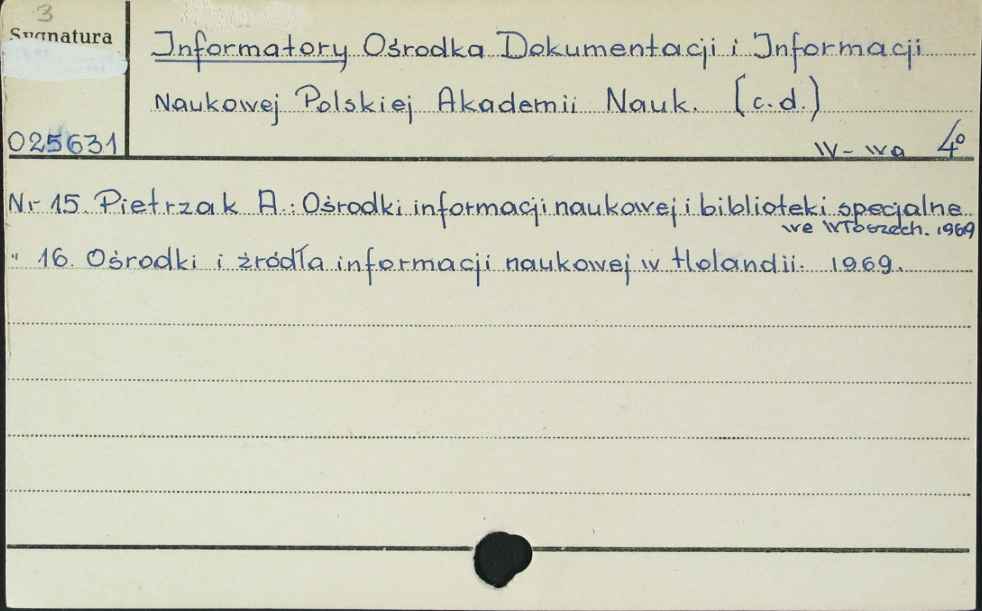 3
Sygnatura
Informatory Ośrodka Dokumentacji i Informacji
Naukowej Polskiej Akademii Nauk. (c.d.)
025631
W-wa 4°
Nr 15. Pietrzak A.: Ośrodki informacji naukowej i biblioteki specjalne
we Włoszech. 1969
" 16. Ośrodki i źródła informacji naukowej w Holandii. 1969.